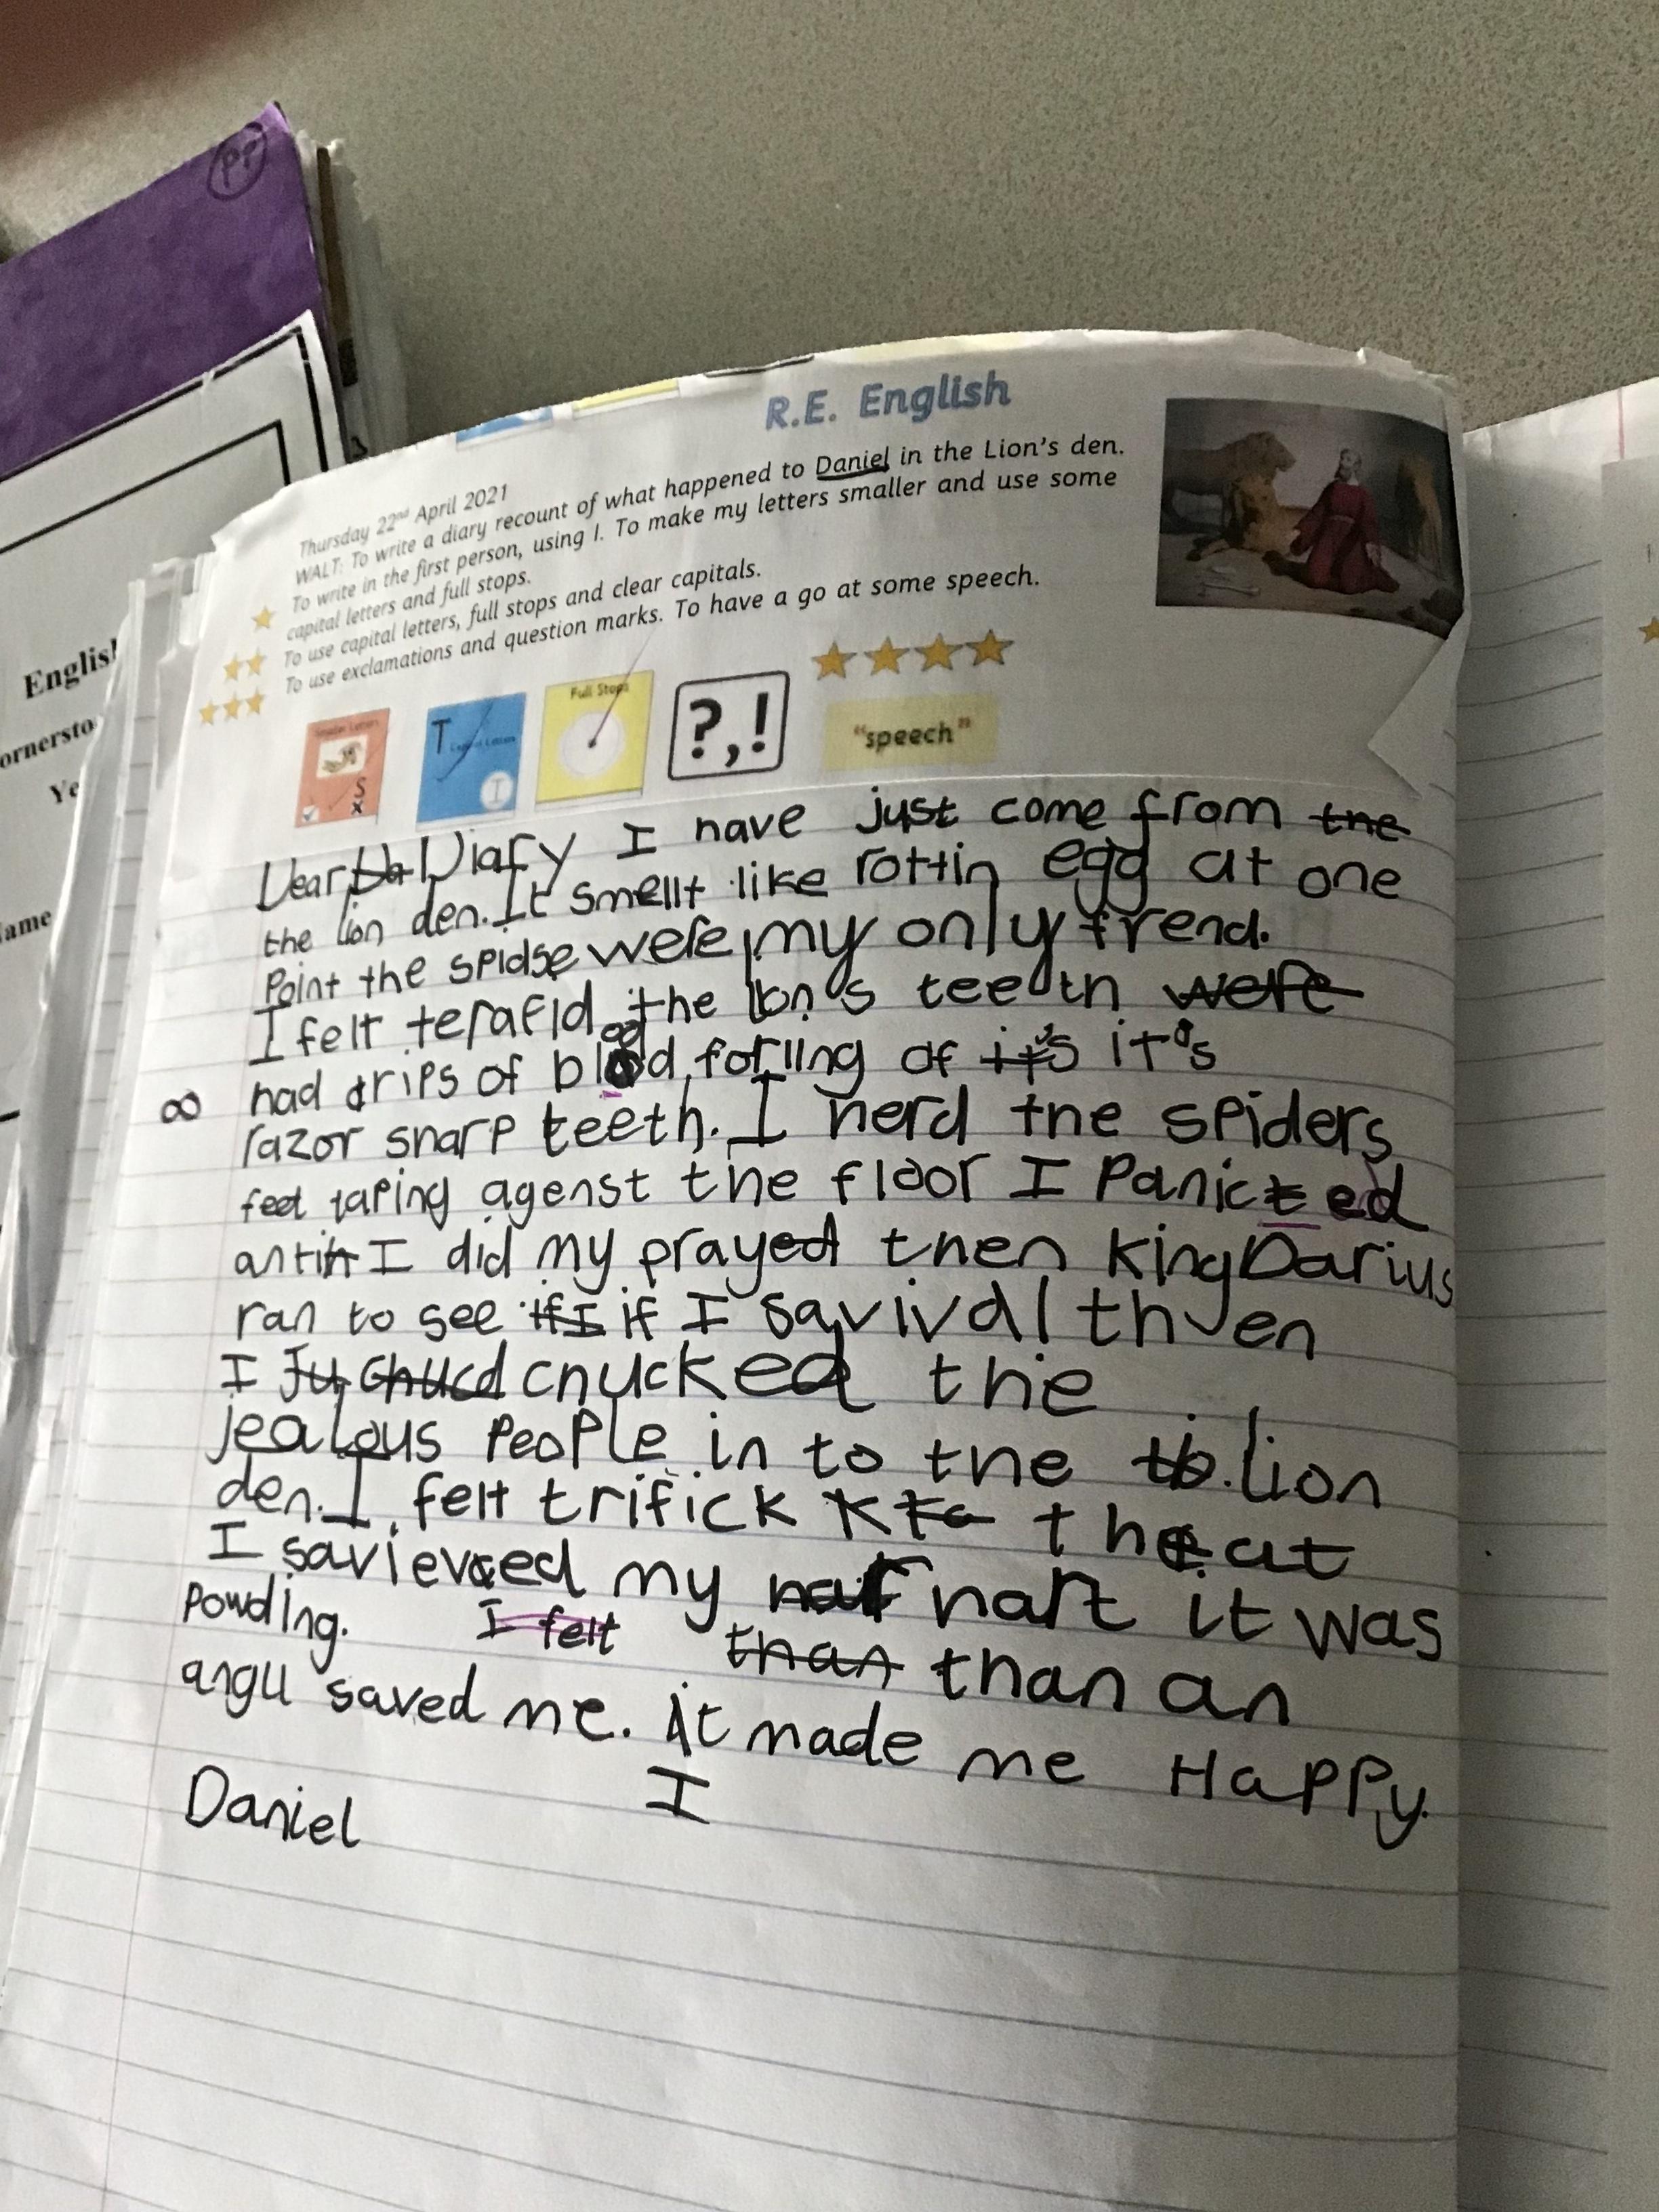 PP
English
ornersto
Ye
ame
R.E. English
Thursday 22nd April 2021
WALT: To write a diary recount of what happened to Daniel in the Lion's den.
To write in the first person, using I. To make my letters smaller and use some
capital letters and full stops.
To use capital letters, full stops and clear capitals.
To use exclamations and question marks. To have a go at some speech.
T
I
S
x
Full Stops
?,!
"speech"
Dear Diary I have just come from the
the lion den. It smellt like rottin egg at one
Point the spidse were my only frend.
I felt terafid the lion's teeth were
had drips of blood forlling of it's it's
oo
razor sharp teeth. I herd the spiders
feet taping agenst the floor I Panicted
antin I did my prayed then King Darius
ran to see if I if I savival then
I Ju Chucd chucked the
jealous People in to the to lion
den. I felt trifick that
I savieved my hart it was
Powding. I felt than than an
angll saved me. it made me Happy.
I
Daniel